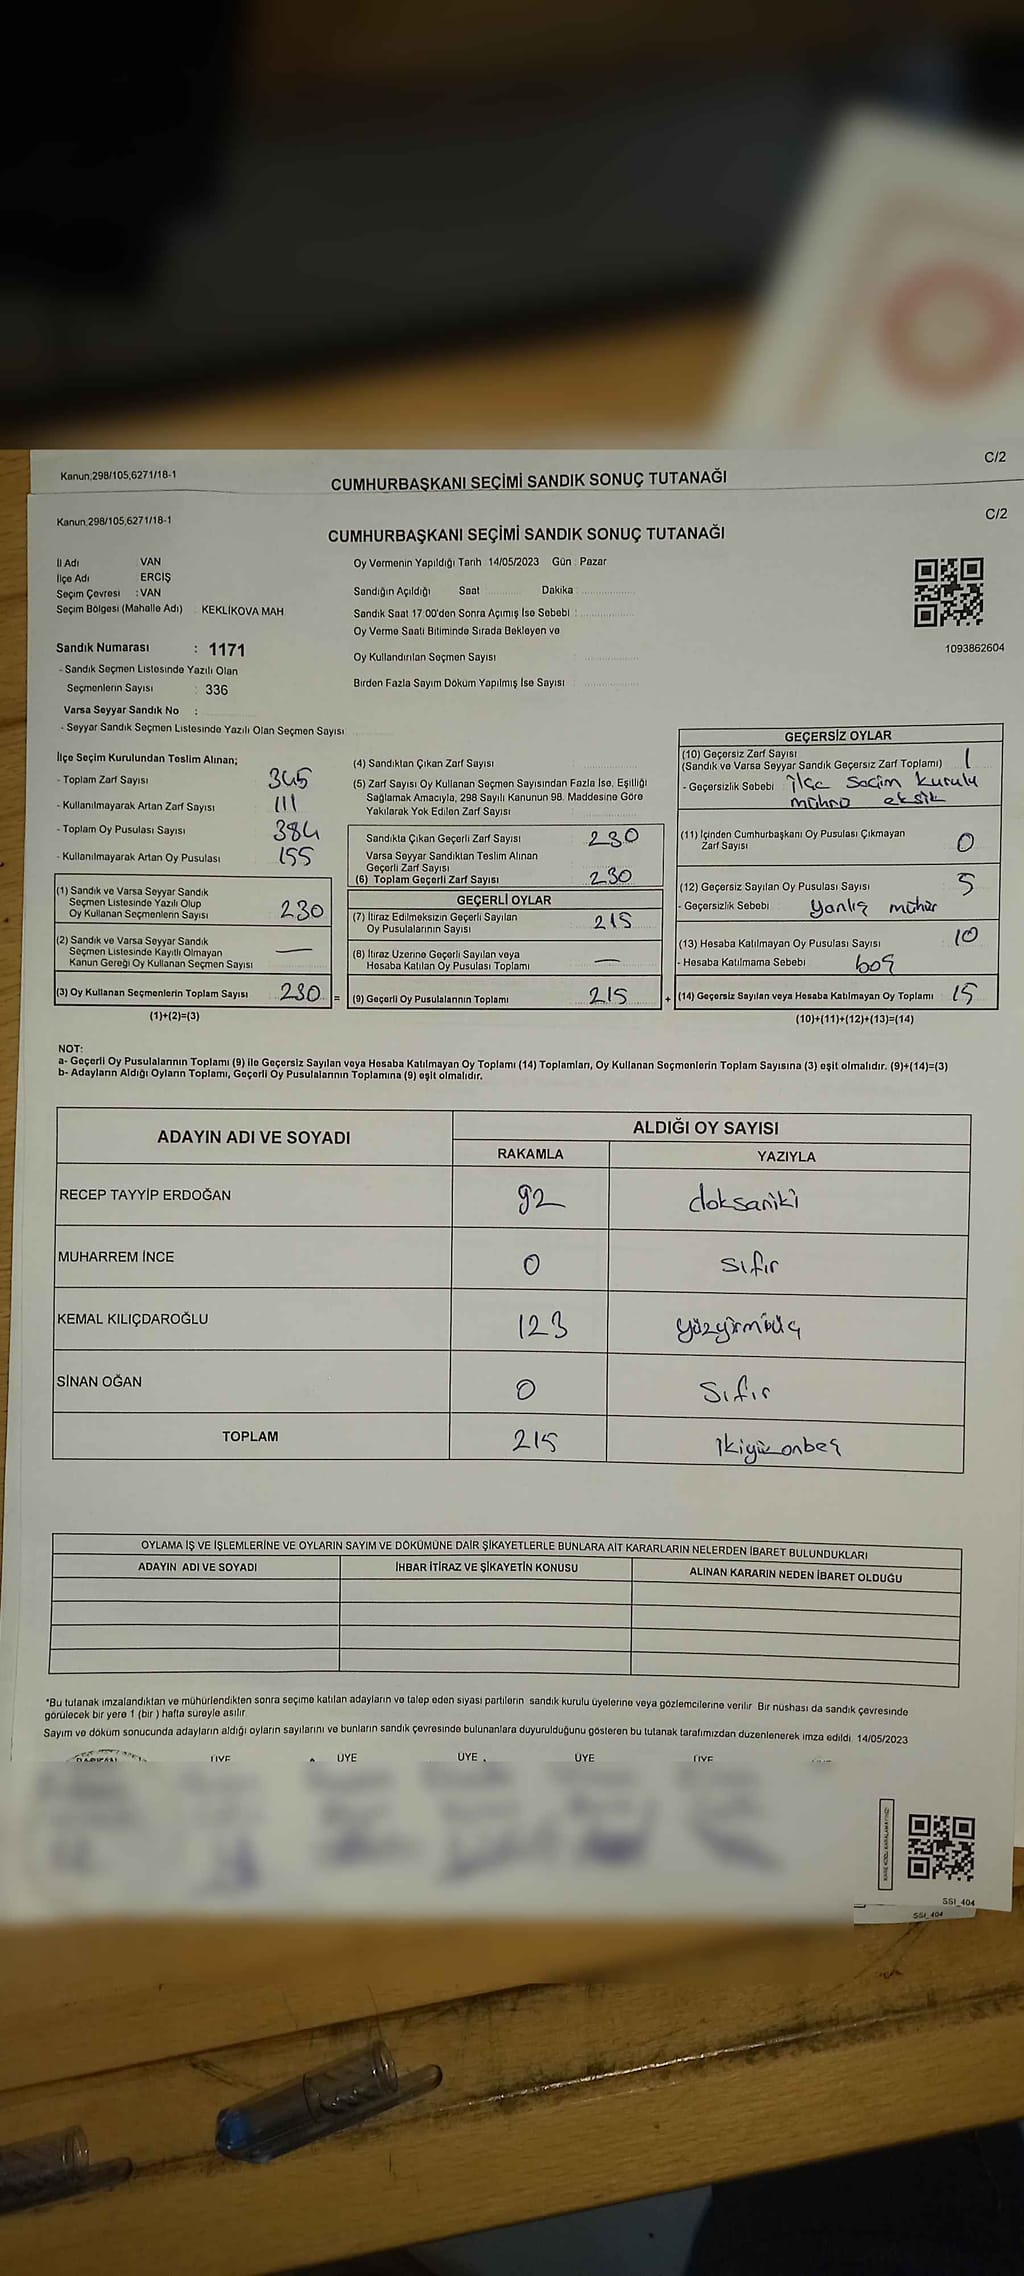 Kanun,298/105,6271/18-1
C/2
CUMHURBAŞKANI SEÇİMİ SANDIK SONUÇ TUTANAĞI
Kanun,298/105,6271/18-1
C/2
CUMHURBAŞKANI SEÇİMİ SANDIK SONUÇ TUTANAĞI
İl Adı VAN
İlçe Adı ERCİŞ
Seçim Çevresi : VAN
Seçim Bölgesi (Mahalle Adı) KEKLİKOVA MAH
Sandık Numarası : 1171
- Sandık Seçmen Listesinde Yazılı Olan
Seçmenlerin Sayısı : 336
Varsa Seyyar Sandık No :
- Seyyar Sandık Seçmen Listesinde Yazılı Olan Seçmen Sayısı
Oy Vermenin Yapıldığı Tarih 14/05/2023 Gün : Pazar
Sandığın Açıldığı Saat Dakika
Sandık Saat 17:00'den Sonra Açımış İse Sebebi :
Oy Verme Saati Bitiminde Sırada Bekleyen ve
Oy Kullandırılan Seçmen Sayısı
Birden Fazla Sayım Döküm Yapılmış İse Sayısı
1093862604
İlçe Seçim Kurulundan Teslim Alınan;
- Toplam Zarf Sayısı 345
- Kullanılmayarak Artan Zarf Sayısı 111
- Toplam Oy Pusulası Sayısı 384
- Kullanılmayarak Artan Oy Pusulası 155
(1) Sandık ve Varsa Seyyar Sandık
Seçmen Listesinde Yazılı Olup
Oy Kullanan Seçmenlerin Sayısı 230
(2) Sandık ve Varsa Seyyar Sandık
Seçmen Listesinde Kayıtlı Olmayan
Kanun Gereği Oy Kullanan Seçmen Sayısı —
(3) Oy Kullanan Seçmenlerin Toplam Sayısı 230 =
(1)+(2)=(3)
(4) Sandıktan Çıkan Zarf Sayısı
(5) Zarf Sayısı Oy Kullanan Seçmen Sayısından Fazla İse, Eşitliği
Sağlamak Amacıyla, 298 Sayılı Kanunun 98. Maddesine Göre
Yakılarak Yok Edilen Zarf Sayısı
Sandıkta Çıkan Geçerli Zarf Sayısı 230
Varsa Seyyar Sandıktan Teslim Alınan
Geçerli Zarf Sayısı
(6) Toplam Geçerli Zarf Sayısı 230
GEÇERLİ OYLAR
(7) İtiraz Edilmeksizin Geçerli Sayılan
Oy Pusulalarının Sayısı 215
(8) İtiraz Üzerine Geçerli Sayılan veya
Hesaba Katılan Oy Pusulası Toplamı —
(9) Geçerli Oy Pusulalarının Toplamı 215 +
GEÇERSİZ OYLAR
(10) Geçersiz Zarf Sayısı
(Sandık ve Varsa Seyyar Sandık Geçersiz Zarf Toplamı) 1
- Geçersizlik Sebebi ilçe Seçim kurulu
mührü eksik
(11) İçinden Cumhurbaşkanı Oy Pusulası Çıkmayan
Zarf Sayısı 0
(12) Geçersiz Sayılan Oy Pusulası Sayısı 5
- Geçersizlik Sebebi Yanlış mühür
(13) Hesaba Katılmayan Oy Pusulası Sayısı 10
- Hesaba Katılmama Sebebi boş
(14) Geçersiz Sayılan veya Hesaba Katılmayan Oy Toplamı 15
(10)+(11)+(12)+(13)=(14)
NOT:
a- Geçerli Oy Pusulalarının Toplamı (9) ile Geçersiz Sayılan veya Hesaba Katılmayan Oy Toplamı (14) Toplamları, Oy Kullanan Seçmenlerin Toplam Sayısına (3) eşit olmalıdır. (9)+(14)=(3)
b- Adayların Aldığı Oyların Toplamı, Geçerli Oy Pusulalarının Toplamına (9) eşit olmalıdır.
ADAYIN ADI VE SOYADI ALDIĞI OY SAYISI
RAKAMLA YAZIYLA
RECEP TAYYİP ERDOĞAN 92 doksaniki
MUHARREM İNCE 0 sıfır
KEMAL KILIÇDAROĞLU 123 yüzyirmiüç
SİNAN OĞAN 0 Sıfır
TOPLAM 215 ikiyüzonbeş
OYLAMA İŞ VE İŞLEMLERİNE VE OYLARIN SAYIM VE DÖKÜMÜNE DAİR ŞİKAYETLERLE BUNLARA AİT KARARLARIN NELERDEN İBARET BULUNDUKLARI
ADAYIN ADI VE SOYADI İHBAR İTİRAZ VE ŞİKAYETİN KONUSU ALINAN KARARIN NEDEN İBARET OLDUĞU
*Bu tutanak imzalandıktan ve mühürlendikten sonra seçime katılan adayların ve talep eden siyasi partilerin sandık kurulu üyelerine veya gözlemcilerine verilir Bir nüshası da sandık çevresinde
görülecek bir yere 1 (bir) hafta süreyle asılır
Sayım ve döküm sonucunda adayların aldığı oyların sayılarını ve bunların sandık çevresinde bulunanlara duyurulduğunu gösteren bu tutanak tarafımızdan düzenlenerek imza edildi 14/05/2023
ÜYE ÜYE ÜYE ÜYE ÜYE
SSİ_404
SSİ_404